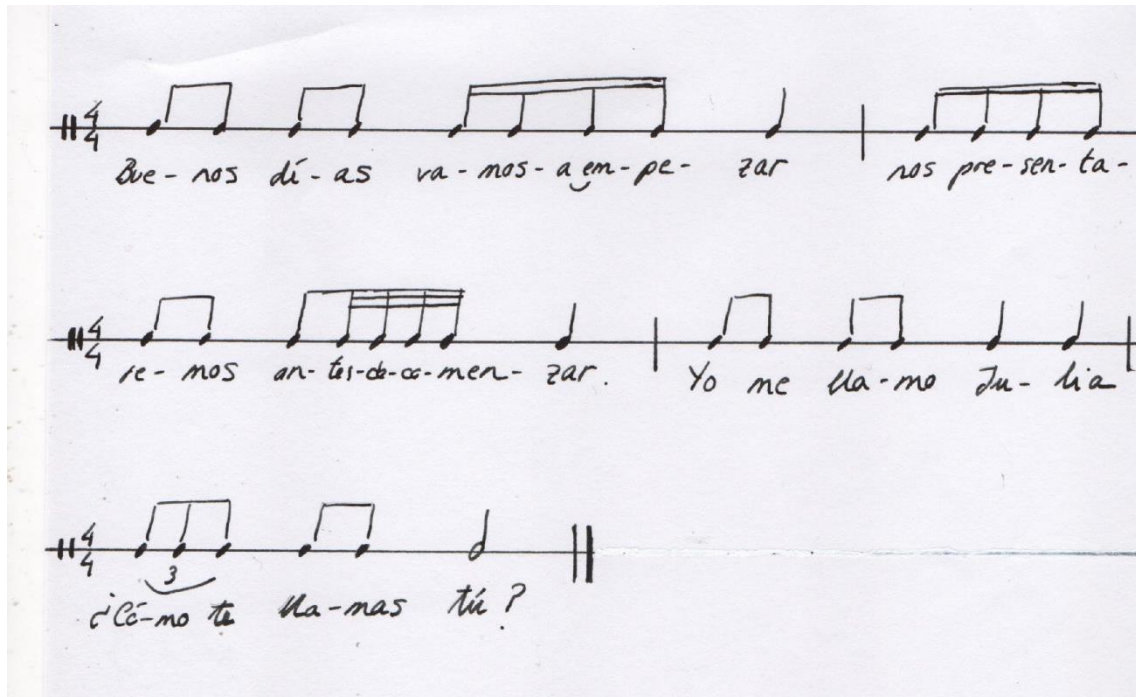 4/4 Bue - nos dí - as va - mos - a em - pe - zar nos pre - sen - ta -
4/4 re - mos an - tes - de - co - men - zar. Yo me lla - mo Ju - lia
4/4 3
¿Có - mo te lla - nas tú?